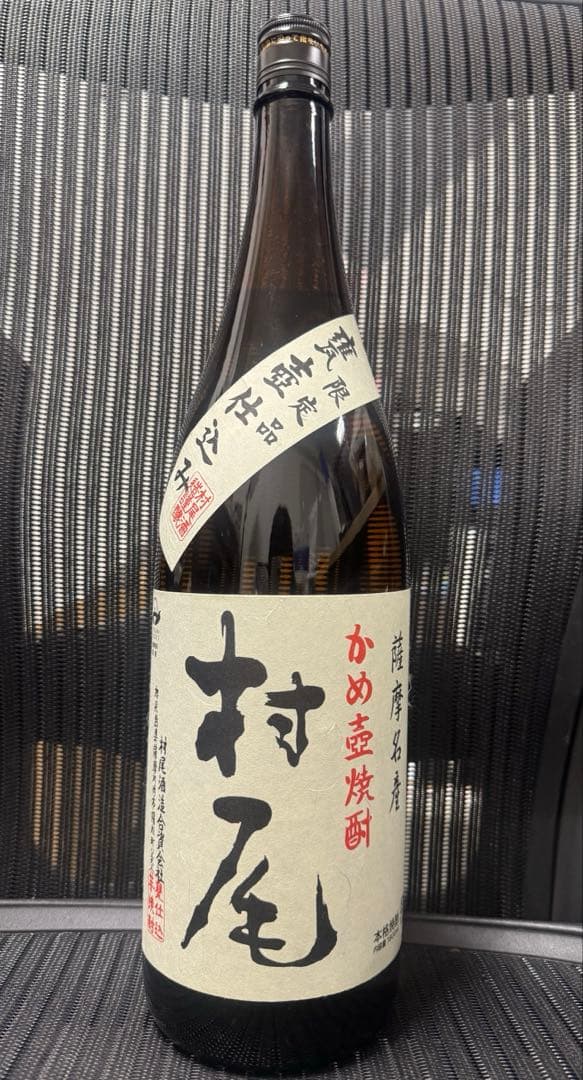 甕壺仕込み
限定品
薩摩名産
かめ壺焼酎
村尾
村尾酒造合資会社
本格焼酎